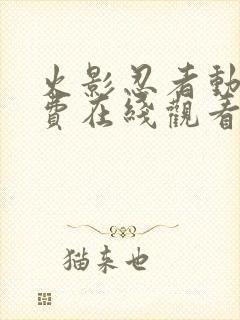 火影忍者動
費在綫觀看
猫来也